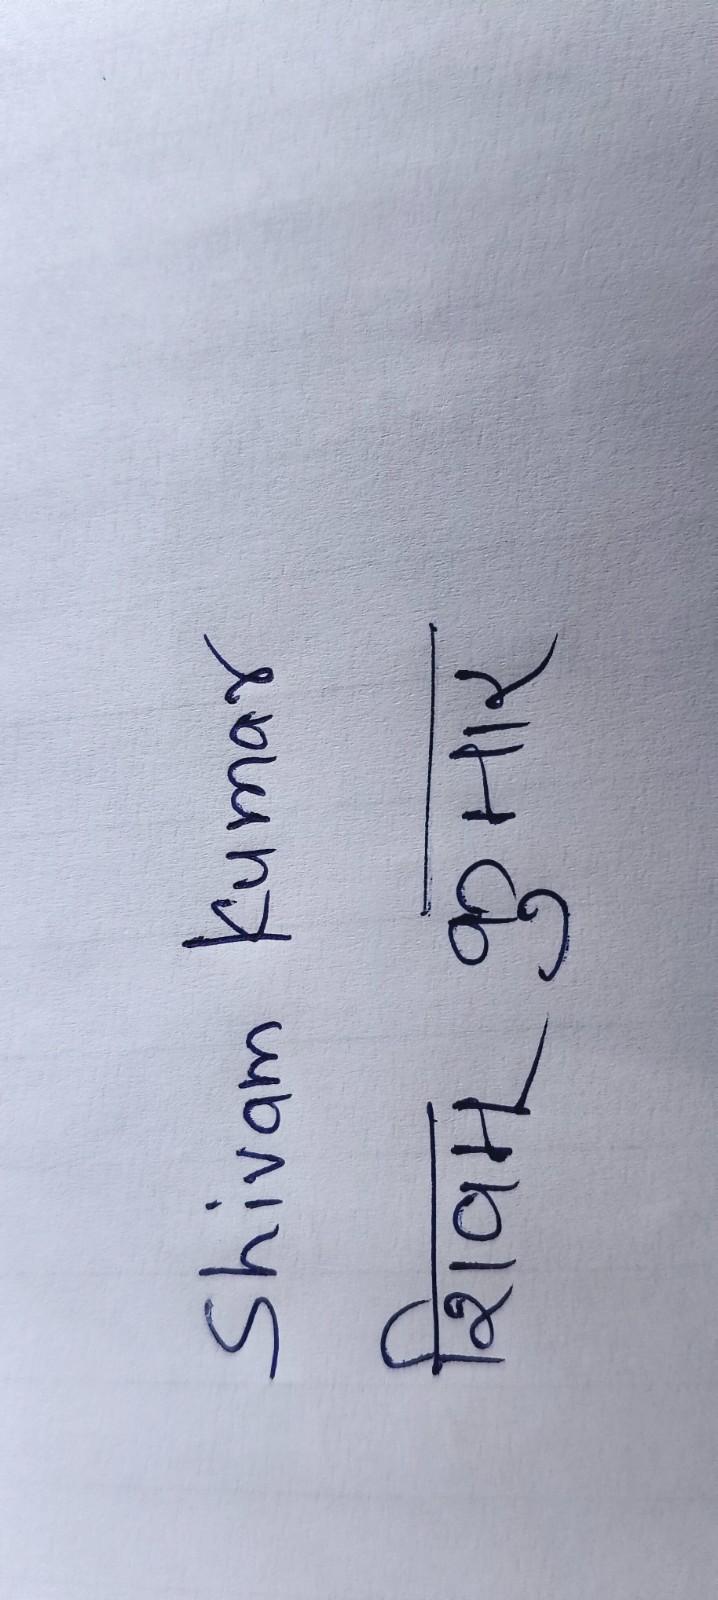 Shivam Kumar
शिवम् कुमार